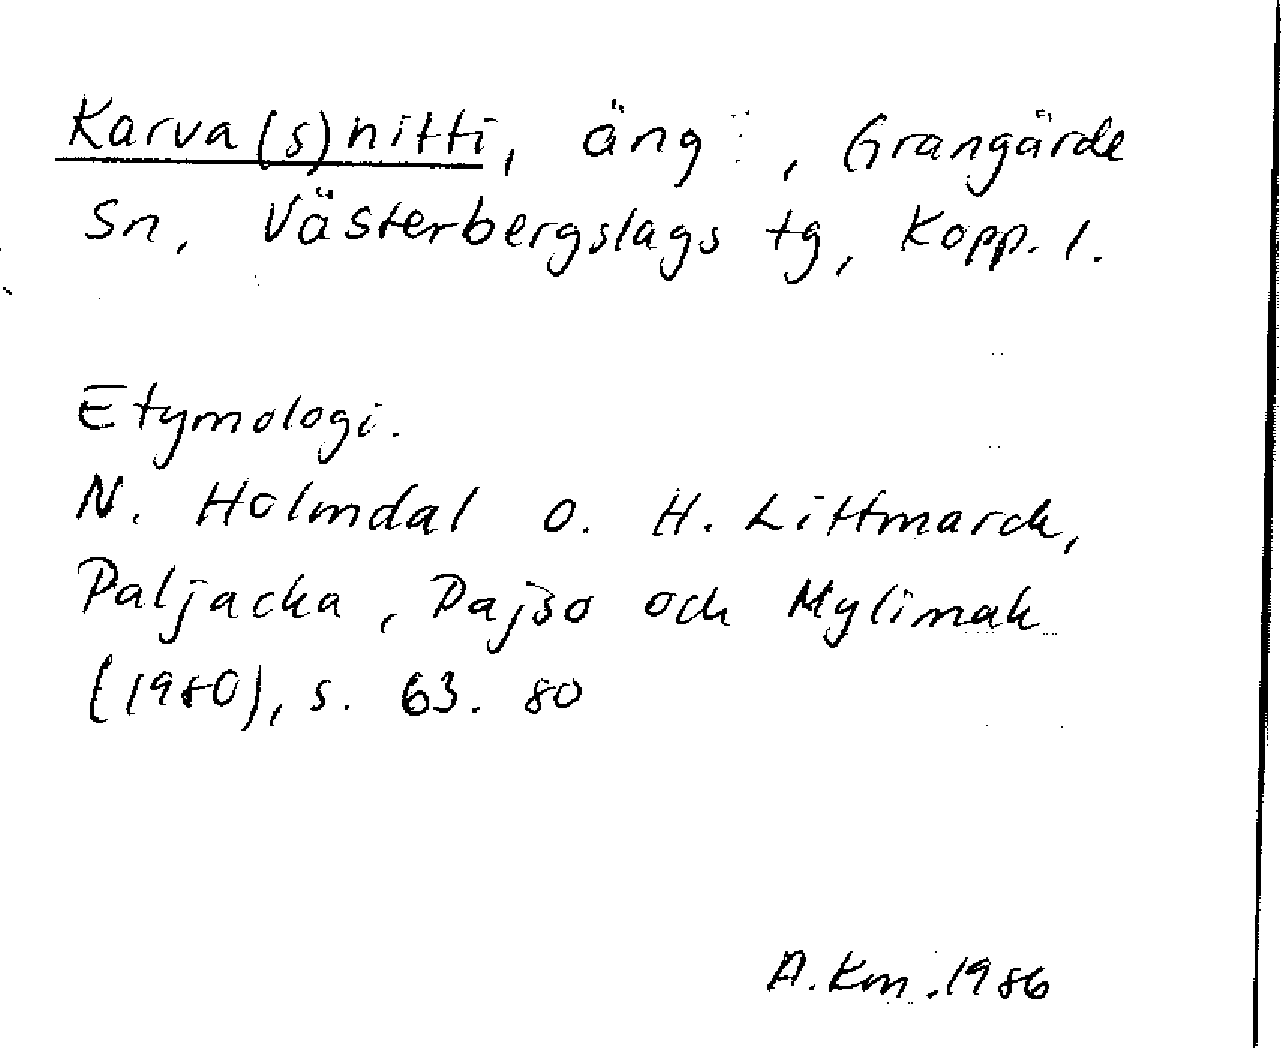 Karva(s)nitti, äng, Grangärde
Sn, Västerbergslags tg, Kopp. l.
Etymologi.
N. Holmdal o. H. Littmarck,
Paljacka, Pajso och Mylimak
(1980), s. 63. 80
A.Km.1986